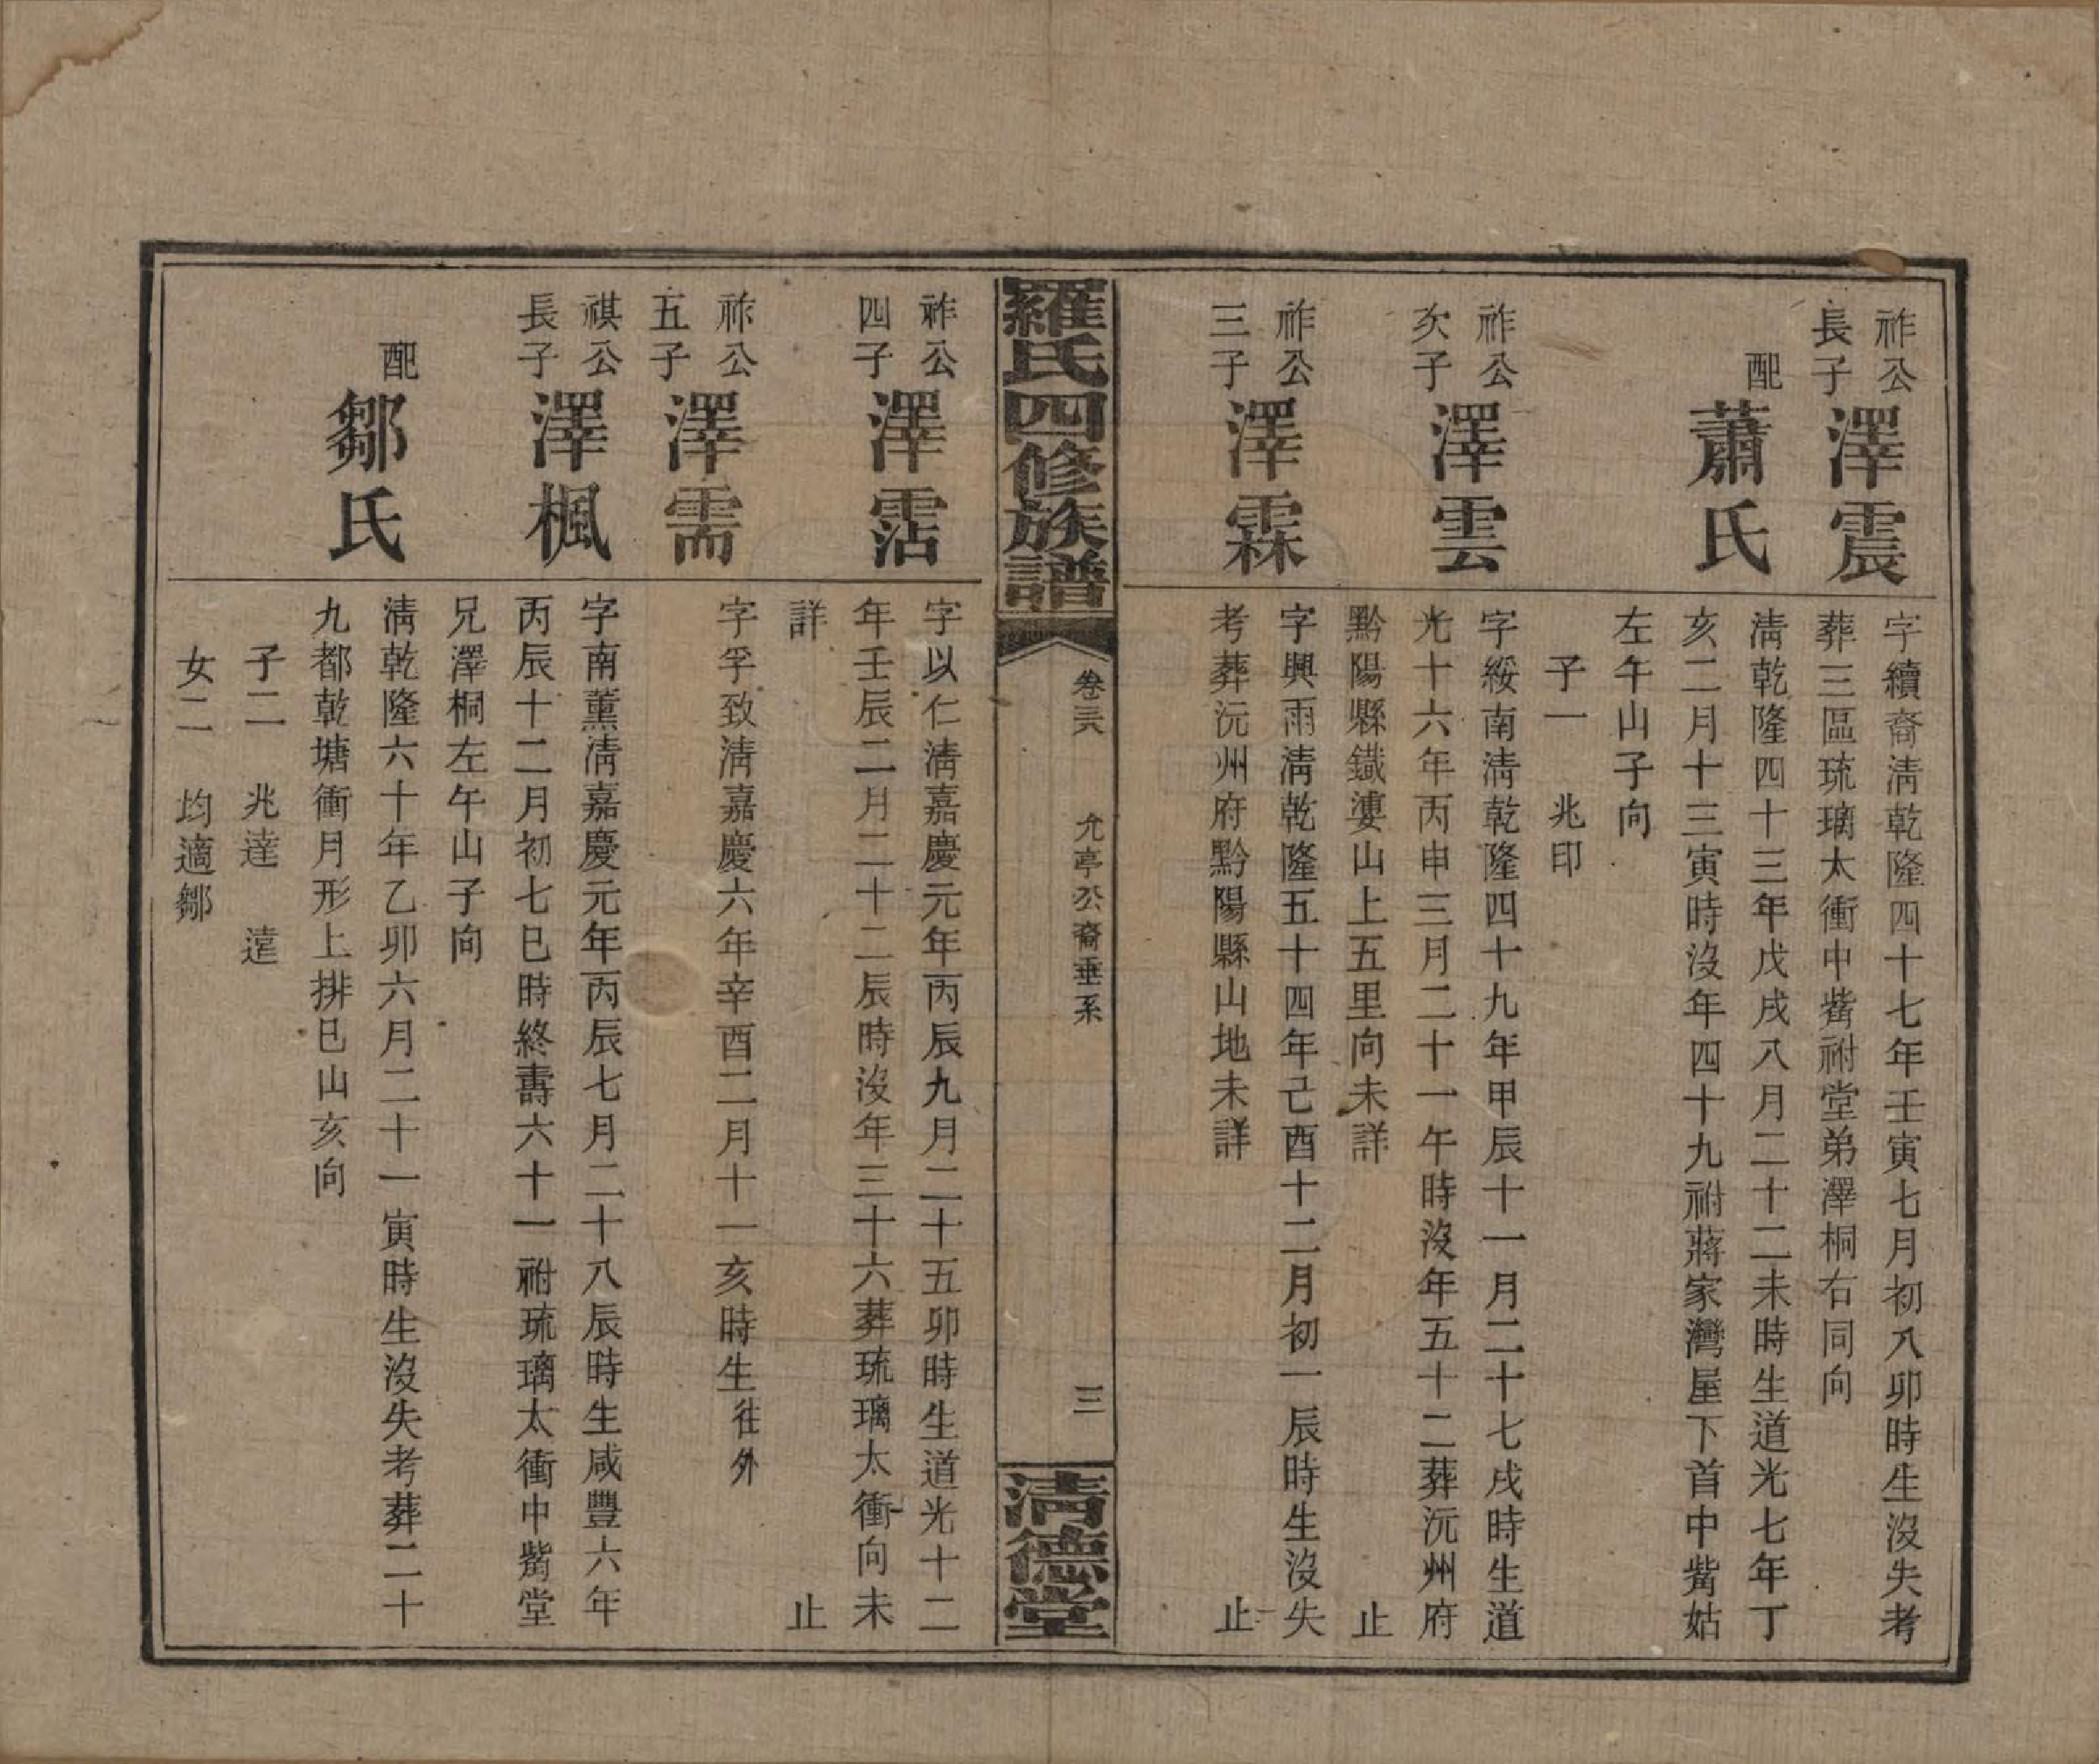 祚公長子
澤震
字續裔淸乾隆四十七年壬寅七月初八卯時生沒失考
葬三區琉璃太衝中嵴祔堂弟澤桐右同向
配
蕭氏
淸乾隆四十三年戊戌八月二十二未時生道光七年丁
亥二月十三寅時沒年四十九祔蔣家灣屋下首中嵴姑
左午山子向
子一 兆印
祚公次子
澤雲
字綏南淸乾隆四十九年甲辰十一月二十七戌時生道
光十六年丙申三月二十一午時沒年五十二葬沅州府
黔陽縣鐵婁山上五里向未詳 止
祚公三子
澤霖
字興雨淸乾隆五十四年己酉十二月初一辰時生沒失
考葬沅州府黔陽縣山地未詳 止
羅氏四修族譜
卷三六
允亭公裔垂系
三
淸德堂
祚公四子
澤霑
字以仁淸嘉慶元年丙辰九月二十五卯時生道光十二
年壬辰二月二十二辰時沒年三十六葬琉璃太衝向未
詳 止
祚公五子
澤需
字孚致淸嘉慶六年辛酉二月十一亥時生往外
祺公長子
澤楓
字南薰淸嘉慶元年丙辰七月二十八辰時生咸豐六年
丙辰十二月初七巳時終壽六十一祔琉璃太衝中嵴堂
兄澤桐左午山子向
配
鄒氏
淸乾隆六十年乙卯六月二十一寅時生沒失考葬二十
九都乾塘衝月形上排巳山亥向
子二 兆達 遠
女二 均適鄒